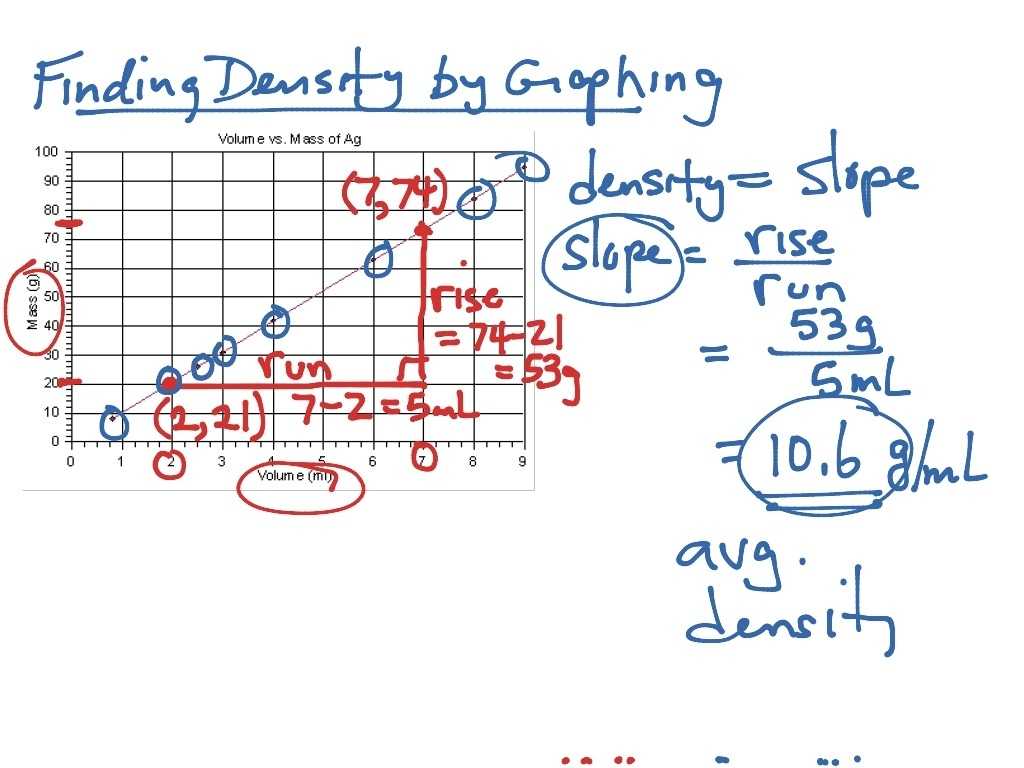 Finding Density by Graphing
Volume vs. Mass of Ag
100
90
80
70
60
50
40
30
20
10
0
Mass (g)
0 1 2 3 4 5 6 7 8 9
Volume (ml)
(7,74)
rise
= 74-21
= 53g
run
7-2=5mL
(2,21)
density = slope
slope = rise
run
= 53g
5mL
= 10.6 g/mL
avg.
density